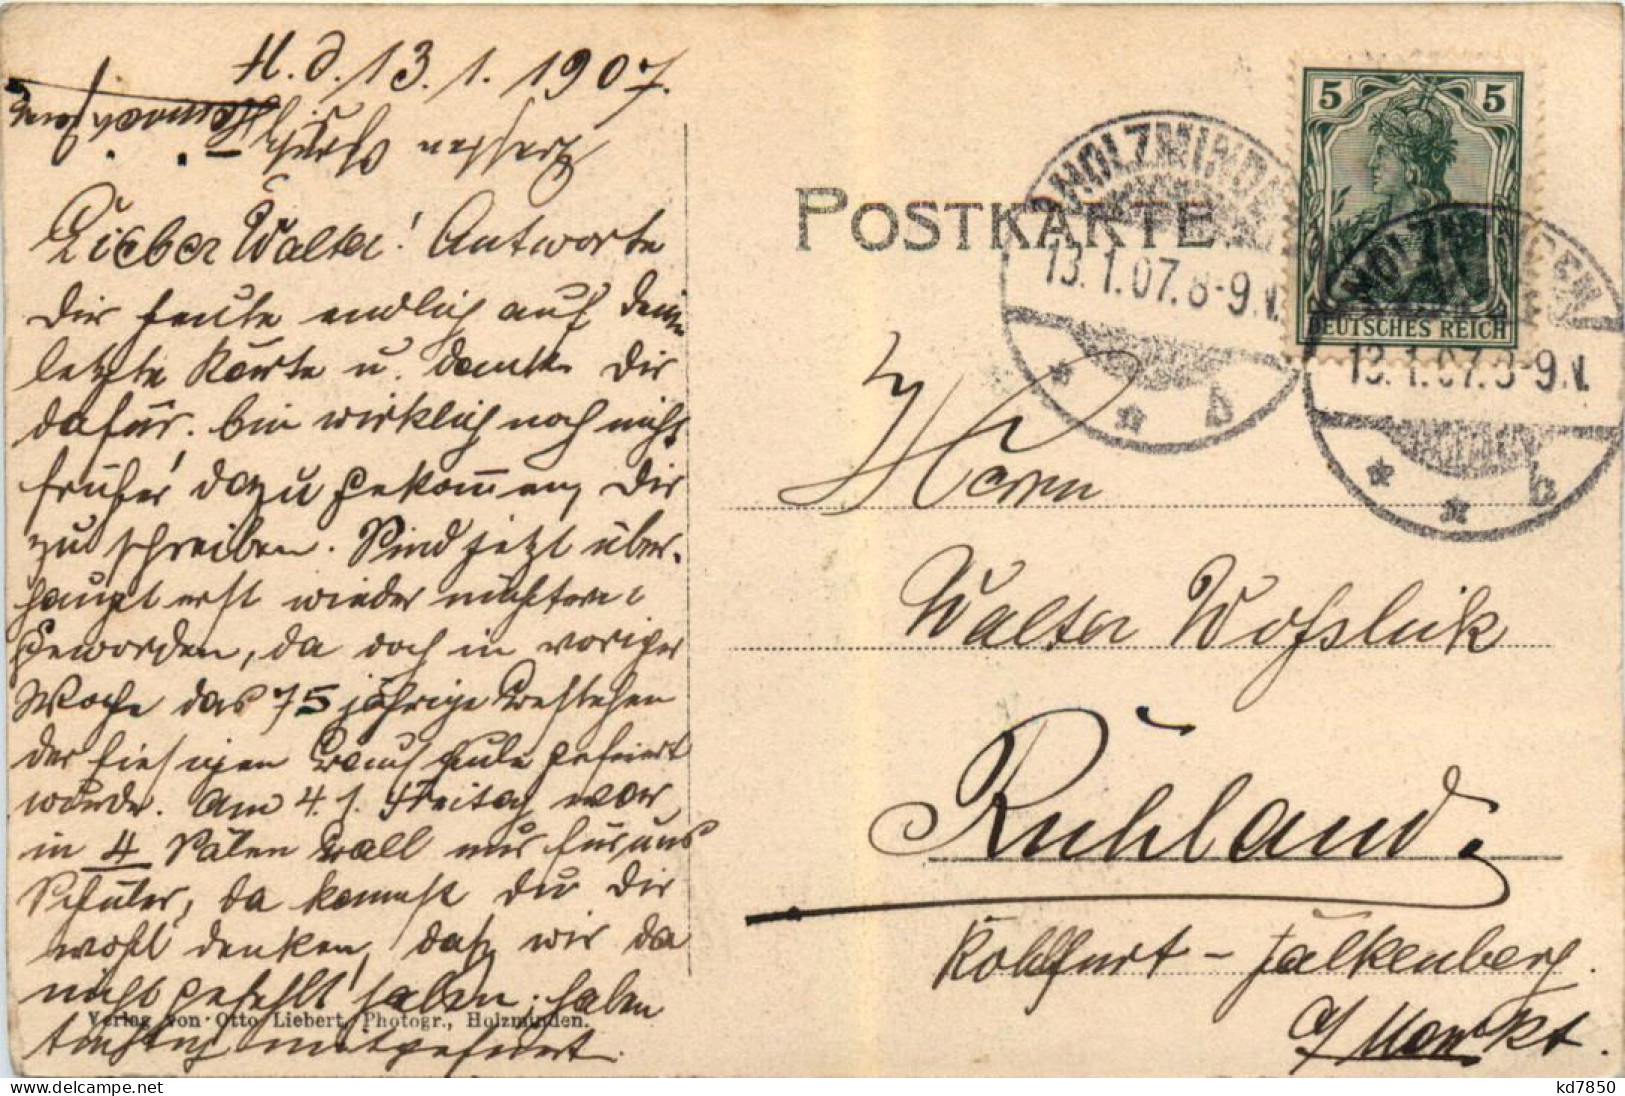 H. d. 13. 1. 1907.
Lieber Walter! Antworte
Dir heute endlich auf Deine
letzte Karte u. danke Dir
dafür. Bin wirklich noch nicht
früher dazu gekommen, Dir
zu schreiben. Sind jetzt über-
haupt erst wieder nüchtern
geworden, da doch in voriger
Woche das 75 jährige Bestehen
der hiesigen Bauschule gefeiert
wurde. Am 4. 1. Freitag war
in 4 Sälen Ball nur für uns
Schüler, da kannst du Dir
wohl denken, daß wir da
nicht gefehlt haben; haben
tüchtig mitgefeiert.
Verlag von Otto Liebert, Photogr., Holzminden.
POSTKARTE.
HOLZMINDEN
13.1.07.8-9.V.
* * b
5 5
DEUTSCHES REICH
HOLZMINDEN
13.1.07.8-9.V.
* * b
Herrn
Walter
Ruhland.
Kohlfurt - Falkenberg.
a/ Markt.
kd7850